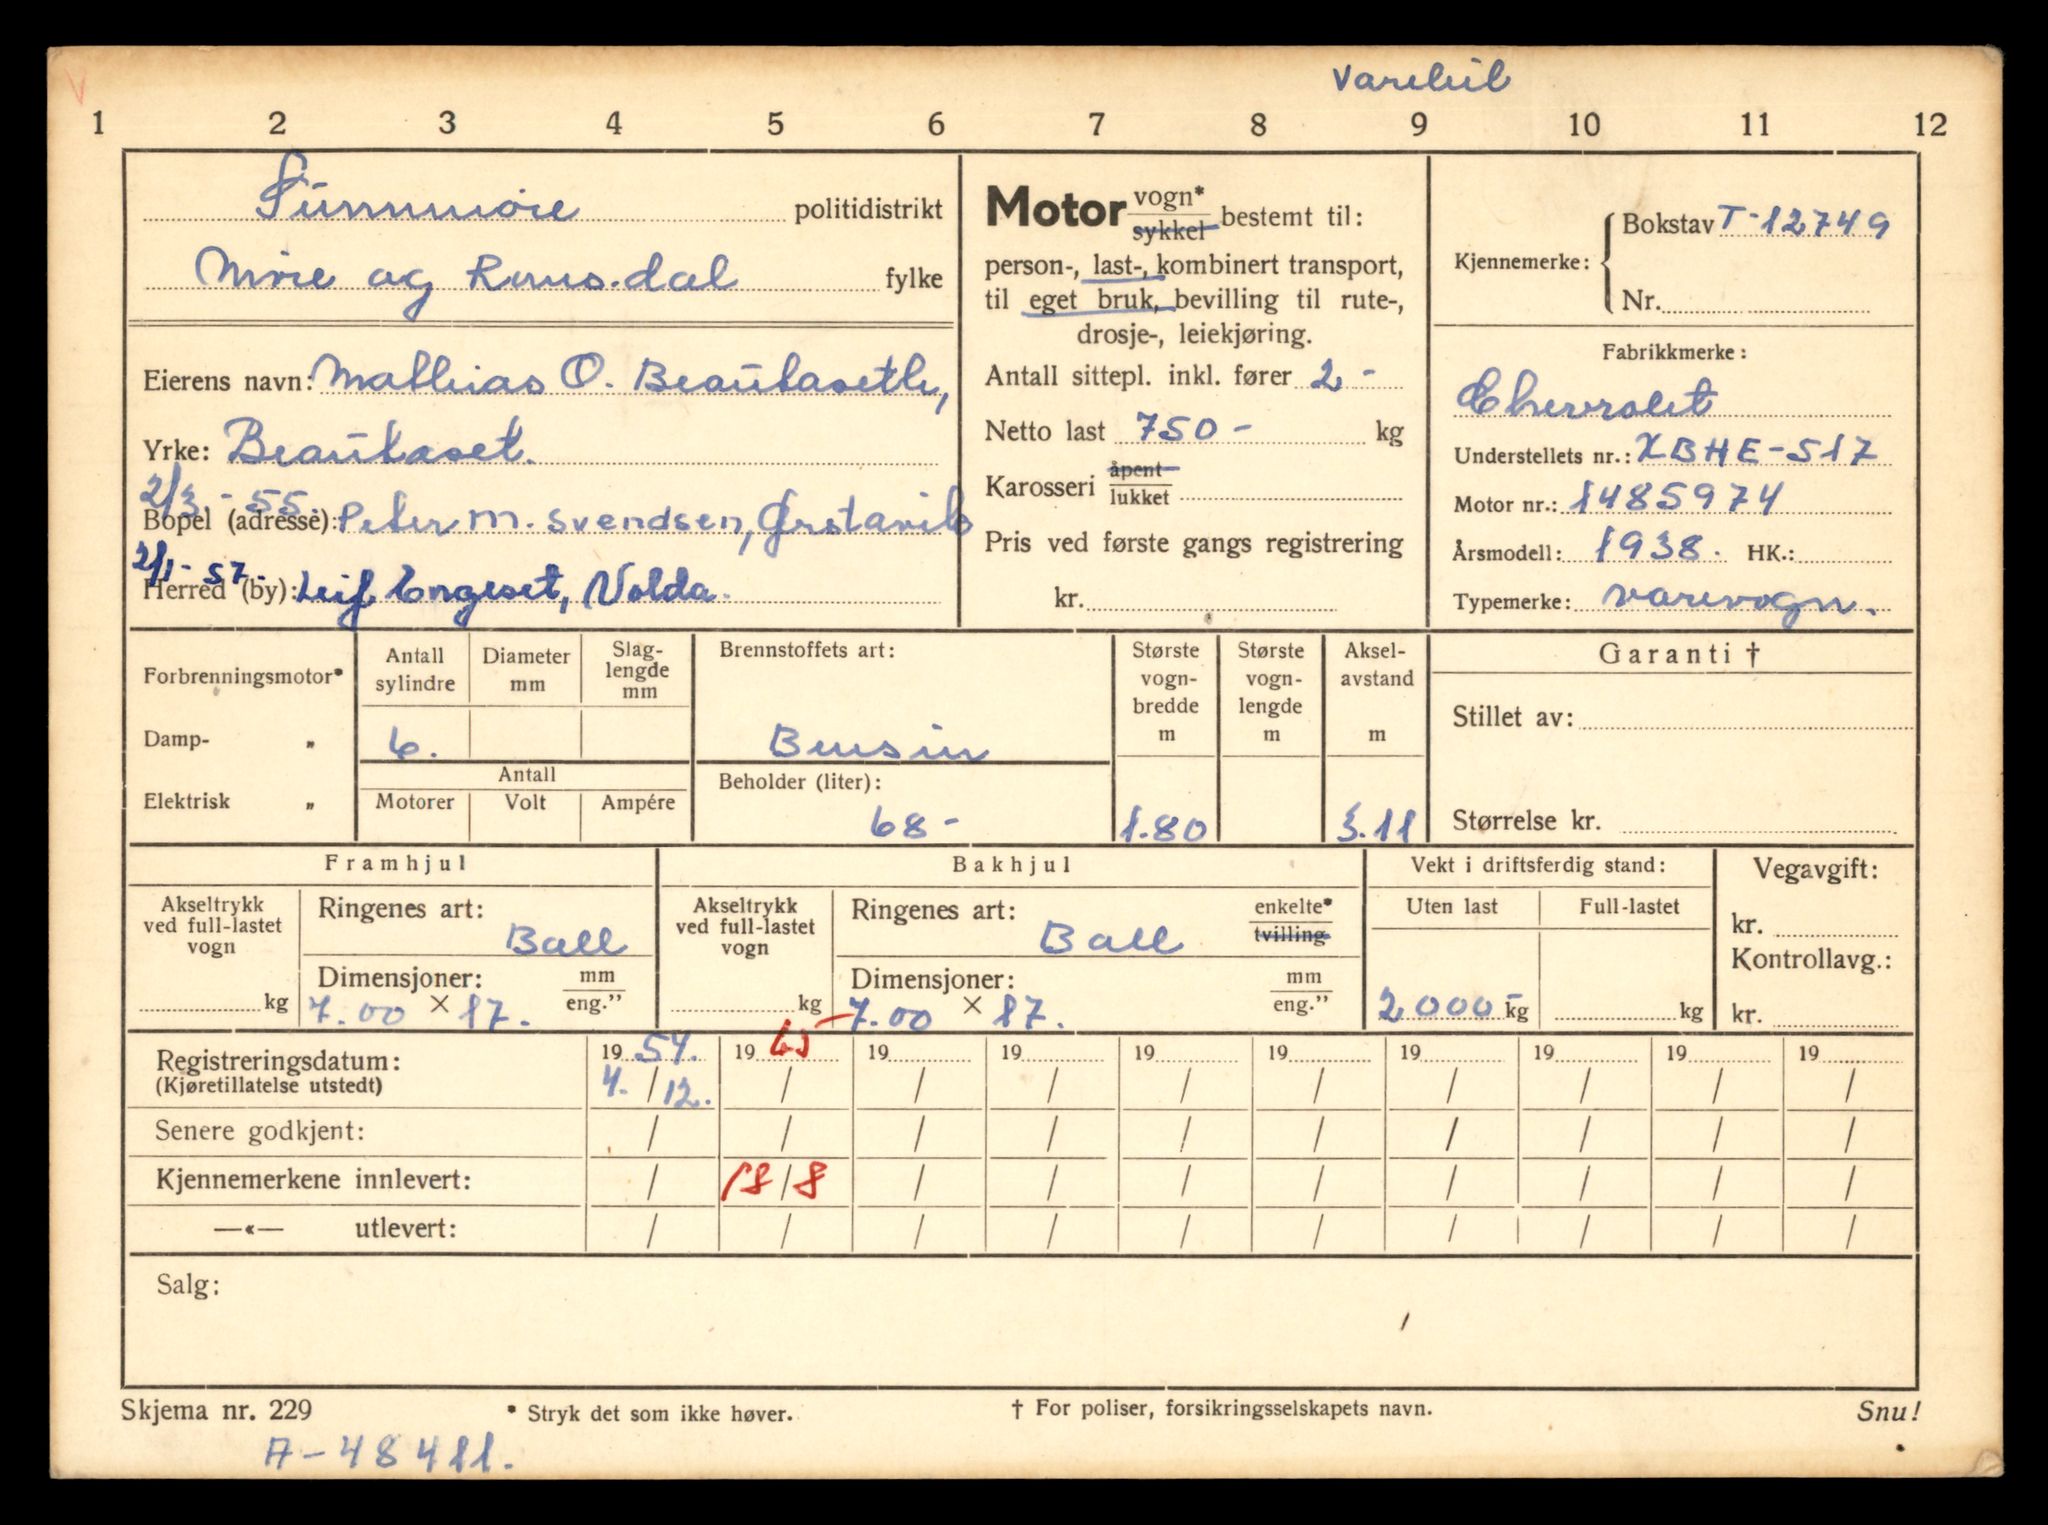 Varebil
1 2 3 4 5 6 7 8 9 10 11 12
Sunnmøre politidistrikt
Møre og Romsdal fylke
Eierens navn: Mathias O. Brautaseth,
Yrke: Brautaset.
2/3-55.
Bopel (adresse): Peter M. Svendsen, Ørstavik
2/1-57.
Herred (by): Leif Engeset, Volda.
Motor vogn* / sykkel bestemt til:
person-, last-, kombinert transport,
til eget bruk, bevilling til rute-,
drosje-, leiekjøring.
Antall sittepl. inkl. fører 2-
Netto last 750- kg
Karosseri åpent / lukket
Pris ved første gangs registrering
kr.
Kjennemerke: Bokstav T-12749
Nr.
Fabrikkmerke:
Chevrolet
Understellets nr.: XBHE-517
Motor nr.: 1485974
Årsmodell: 1938. HK.:
Typemerke: varevogn.
Forbrenningsmotor*
Damp- „
Elektrisk „
Antall sylindre
6.
Diameter mm
Slag-lengde mm
Antall
Motorer Volt Ampére
Brennstoffets art:
Bensin
Beholder (liter):
68-
Største vogn-bredde m
1.80
Største vogn-lengde m
Aksel-avstand m
3.11
Garanti †
Stillet av:
Størrelse kr.
Framhjul
Akseltrykk ved full-lastet vogn
kg
Ringenes art:
Ball
Dimensjoner: mm / eng."
7.00 × 17.
Bakhjul
Akseltrykk ved full-lastet vogn
kg
Ringenes art: enkelte* / tvilling
Ball
Dimensjoner: mm / eng."
7.00 × 17.
Vekt i driftsferdig stand:
Uten last Full-lastet
2000- kg kg
Vegavgift:
kr.
Kontrollavg.:
kr.
Registreringsdatum: 19 54. 19 65 19 19 19 19 19 19 19 19
(Kjøretillatelse utstedt) 4. / 12. / / / / / / / / /
Senere godkjent: / / / / / / / / / /
Kjennemerkene innlevert: / 18/8 / / / / / / / /
—«— utlevert: / / / / / / / / / /
Salg:
Skjema nr. 229 * Stryk det som ikke høver. † For poliser, forsikringsselskapets navn. Snu!
A-48411.